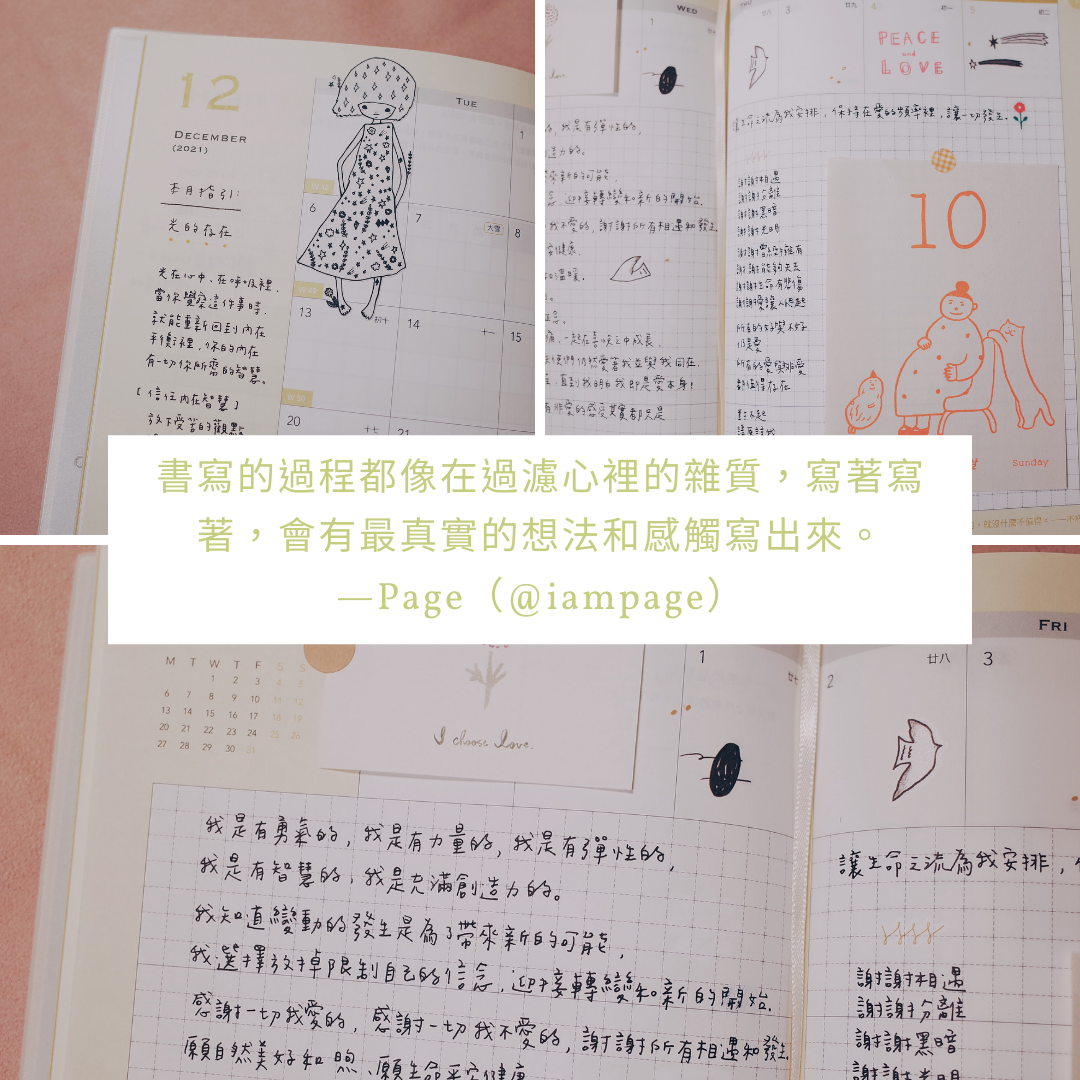 12
DECEMBER
(2021)
本月指引:
光的存在
光在心中、在呼吸裡,
當你覺察這件事時,
就能重新回到內在
平衡裡,你的內在
有一切你所需的智慧。
[信任內在智慧]
放下受苦的觀點
TUE
1
W 49
6
7
大雪
8
13
初十
14
十一
15
W 50
20
十七
21
WED
1
我是有彈性的,
造力的。
來新的可能,
念,迎接轉變和新的開始.
我不愛的,謝謝所有相遇和發生
安健康.
和溫暖.
一起在喜悅之中成長.
使們仍然愛著我並與我同在.
直到我明白我即是愛本身!
有非愛的感受其實都只是
廿八
3
廿九
4
初一
5
初二
PEACE
and
LOVE
讓生命之流為我安排,保持在愛的頻率裡,讓一切發生.
謝謝相遇
謝謝分離
謝謝黑暗
謝謝光明
謝謝曾經擁有
謝謝能夠失去
謝謝生命有悲傷
謝謝愛讓人想起
所有的好與不好
仍是愛
所有的愛與非愛
都值得存在
對不起
請原諒我
10
Sunday
書寫的過程都像在過濾心裡的雜質,寫著寫
著,會有最真實的想法和感觸寫出來。
—Page(@iampage)
M T W T F S S
1 2 3 4 5
6 7 8 9 10 11 12
13 14 15 16 17 18 19
20 21 22 23 24 25 26
27 28 29 30 31
I choose love.
1
廿七
2
廿八
FRI
3
我是有勇氣的,我是有力量的,我是有彈性的,
我是有智慧的,我是充滿創造力的。
我知道變動的發生是為了帶來新的可能,
我選擇放掉限制自己的信念,迎接轉變和新的開始.
感謝一切我愛的,感謝一切我不愛的,謝謝所有相遇和發生.
願自然美好和煦、願生命平安健康
讓生命之流為我安排,
謝謝相遇
謝謝分離
謝謝黑暗
謝謝光明